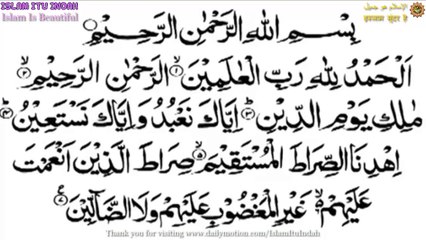 ISLAM ITU INDAH
Islam Is Beautiful
الإسلام هو جميل
इस्लाम सुंदर है
بِسْمِ اللهِ الرَّحْمٰنِ الرَّحِيْمِ
اَلْحَمْدُ لِلهِ رَبِّ الْعٰلَمِيْنَ ۙ﴿۱﴾ الرَّحْمٰنِ الرَّحِيْمِ ۙ﴿۲﴾
مٰلِكِ يَوْمِ الدِّيْنِ ؕ﴿۳﴾ اِيَّاكَ نَعْبُدُ وَاِيَّاكَ نَسْتَعِيْنُ ؕ﴿۴﴾
اِهْدِنَا الصِّرَاطَ الْمُسْتَقِيْمَ ۙ﴿۵﴾ صِرَاطَ الَّذِيْنَ اَنْعَمْتَ
عَلَيْهِمْ ۙ۬﴿۶﴾ غَيْرِ الْمَغْضُوْبِ عَلَيْهِمْ وَلَا الضَّآلِّيْنَ
Thank you for visiting www.dailymotion.com/IslamItuIndah